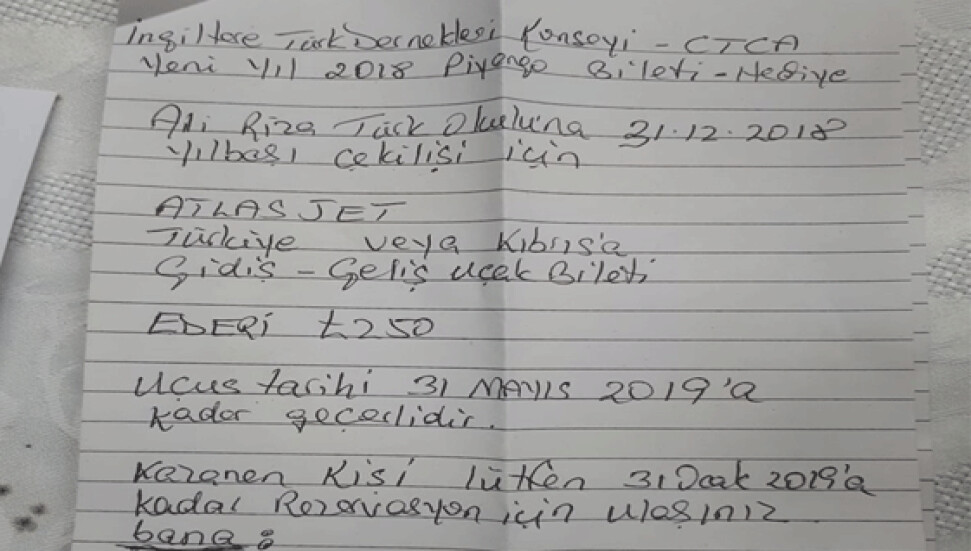 İngiltere Türk Dernekleri Konseyi - CTCA
Yeni Yıl 2018 Piyango Bileti - Hediye
Ali Riza Türk Okulu'na 31.12.2018
Yılbaşı Çekilişi için
ATLAS JET
Türkiye veya Kıbrıs'a
Gidiş - Geliş Uçak Bileti
EDERİ £250
Uçuş tarihi 31 MAYIS 2019'a
kadar geçerlidir.
Kazanan Kişi lütfen 31 Ocak 2019'a
kadar Rezerviasyon için ulaşınız
bana: